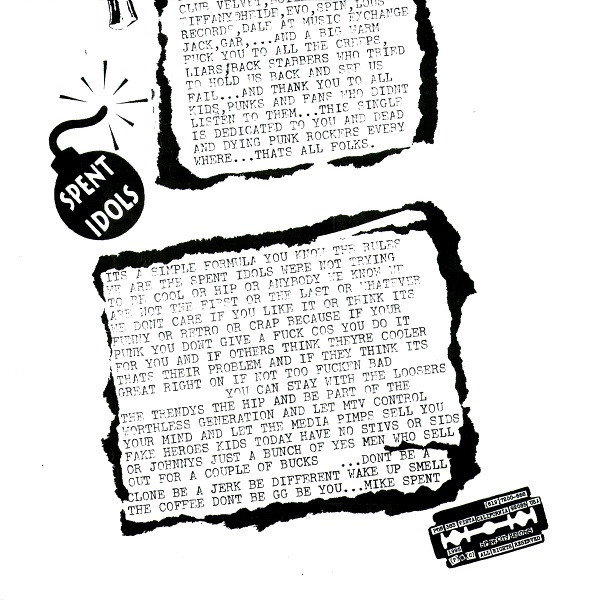 CLUB VELVET,
TIFFANY BHEIDE,EVO,SPIN,LOUS
RECORDS,DALE AT MUSIC EXCHANGE
JACK,GAR,...AND A BIG WARM
FUCK YOU TO ALL THE CREEPS,
LIARS,BACK STABBERS WHO TRIED
TO HOLD US BACK AND SEE US
FAIL...AND THANK YOU TO ALL
KIDS,PUNKS AND FANS WHO DIDNT
LISTEN TO THEM...THIS SINGLE
IS DEDICATED TO YOU AND DEAD
AND DYING PUNK ROCKERS EVERY
WHERE...THATS ALL FOLKS.
SPENT
IDOLS
ITS A SIMPLE FORMULA YOU KNOW THE RULES
WE ARE THE SPENT IDOLS WERE NOT TRYING
TO BE COOL OR HIP OR ANYBODY WE KNOW WE
ARE NOT THE FIRST OR THE LAST OR WHATEVER
WE DONT CARE IF YOU LIKE IT OR THINK ITS
FUNNY OR RETRO OR CRAP BECAUSE IF YOUR
PUNK YOU DONT GIVE A FUCK COS YOU DO IT
FOR YOU AND IF OTHERS THINK THEYRE COOLER
THATS THEIR PROBLEM AND IF THEY THINK ITS
GREAT RIGHT ON IF NOT TOO FUCKEN BAD
YOU CAN STAY WITH THE LOOSERS
THE TRENDYS THE HIP AND BE PART OF THE
WORTHLESS GENERATION AND LET MTV CONTROL
YOUR MIND AND LET THE MEDIA PIMPS SELL YOU
FAKE HEROES KIDS TODAY HAVE NO STIVS OR SIDS
OR JOHNNYS JUST A BUNCH OF YES MEN WHO SELL
OUT FOR A COUPLE OF BUCKS ...DONT BE A
CLONE BE A JERK BE DIFFERENT WAKE UP SMELL
THE COFFEE DONT BE GG BE YOU...MIKE SPENT
VISTA CALIFORNIA
ALL RIGHTS RESERVED